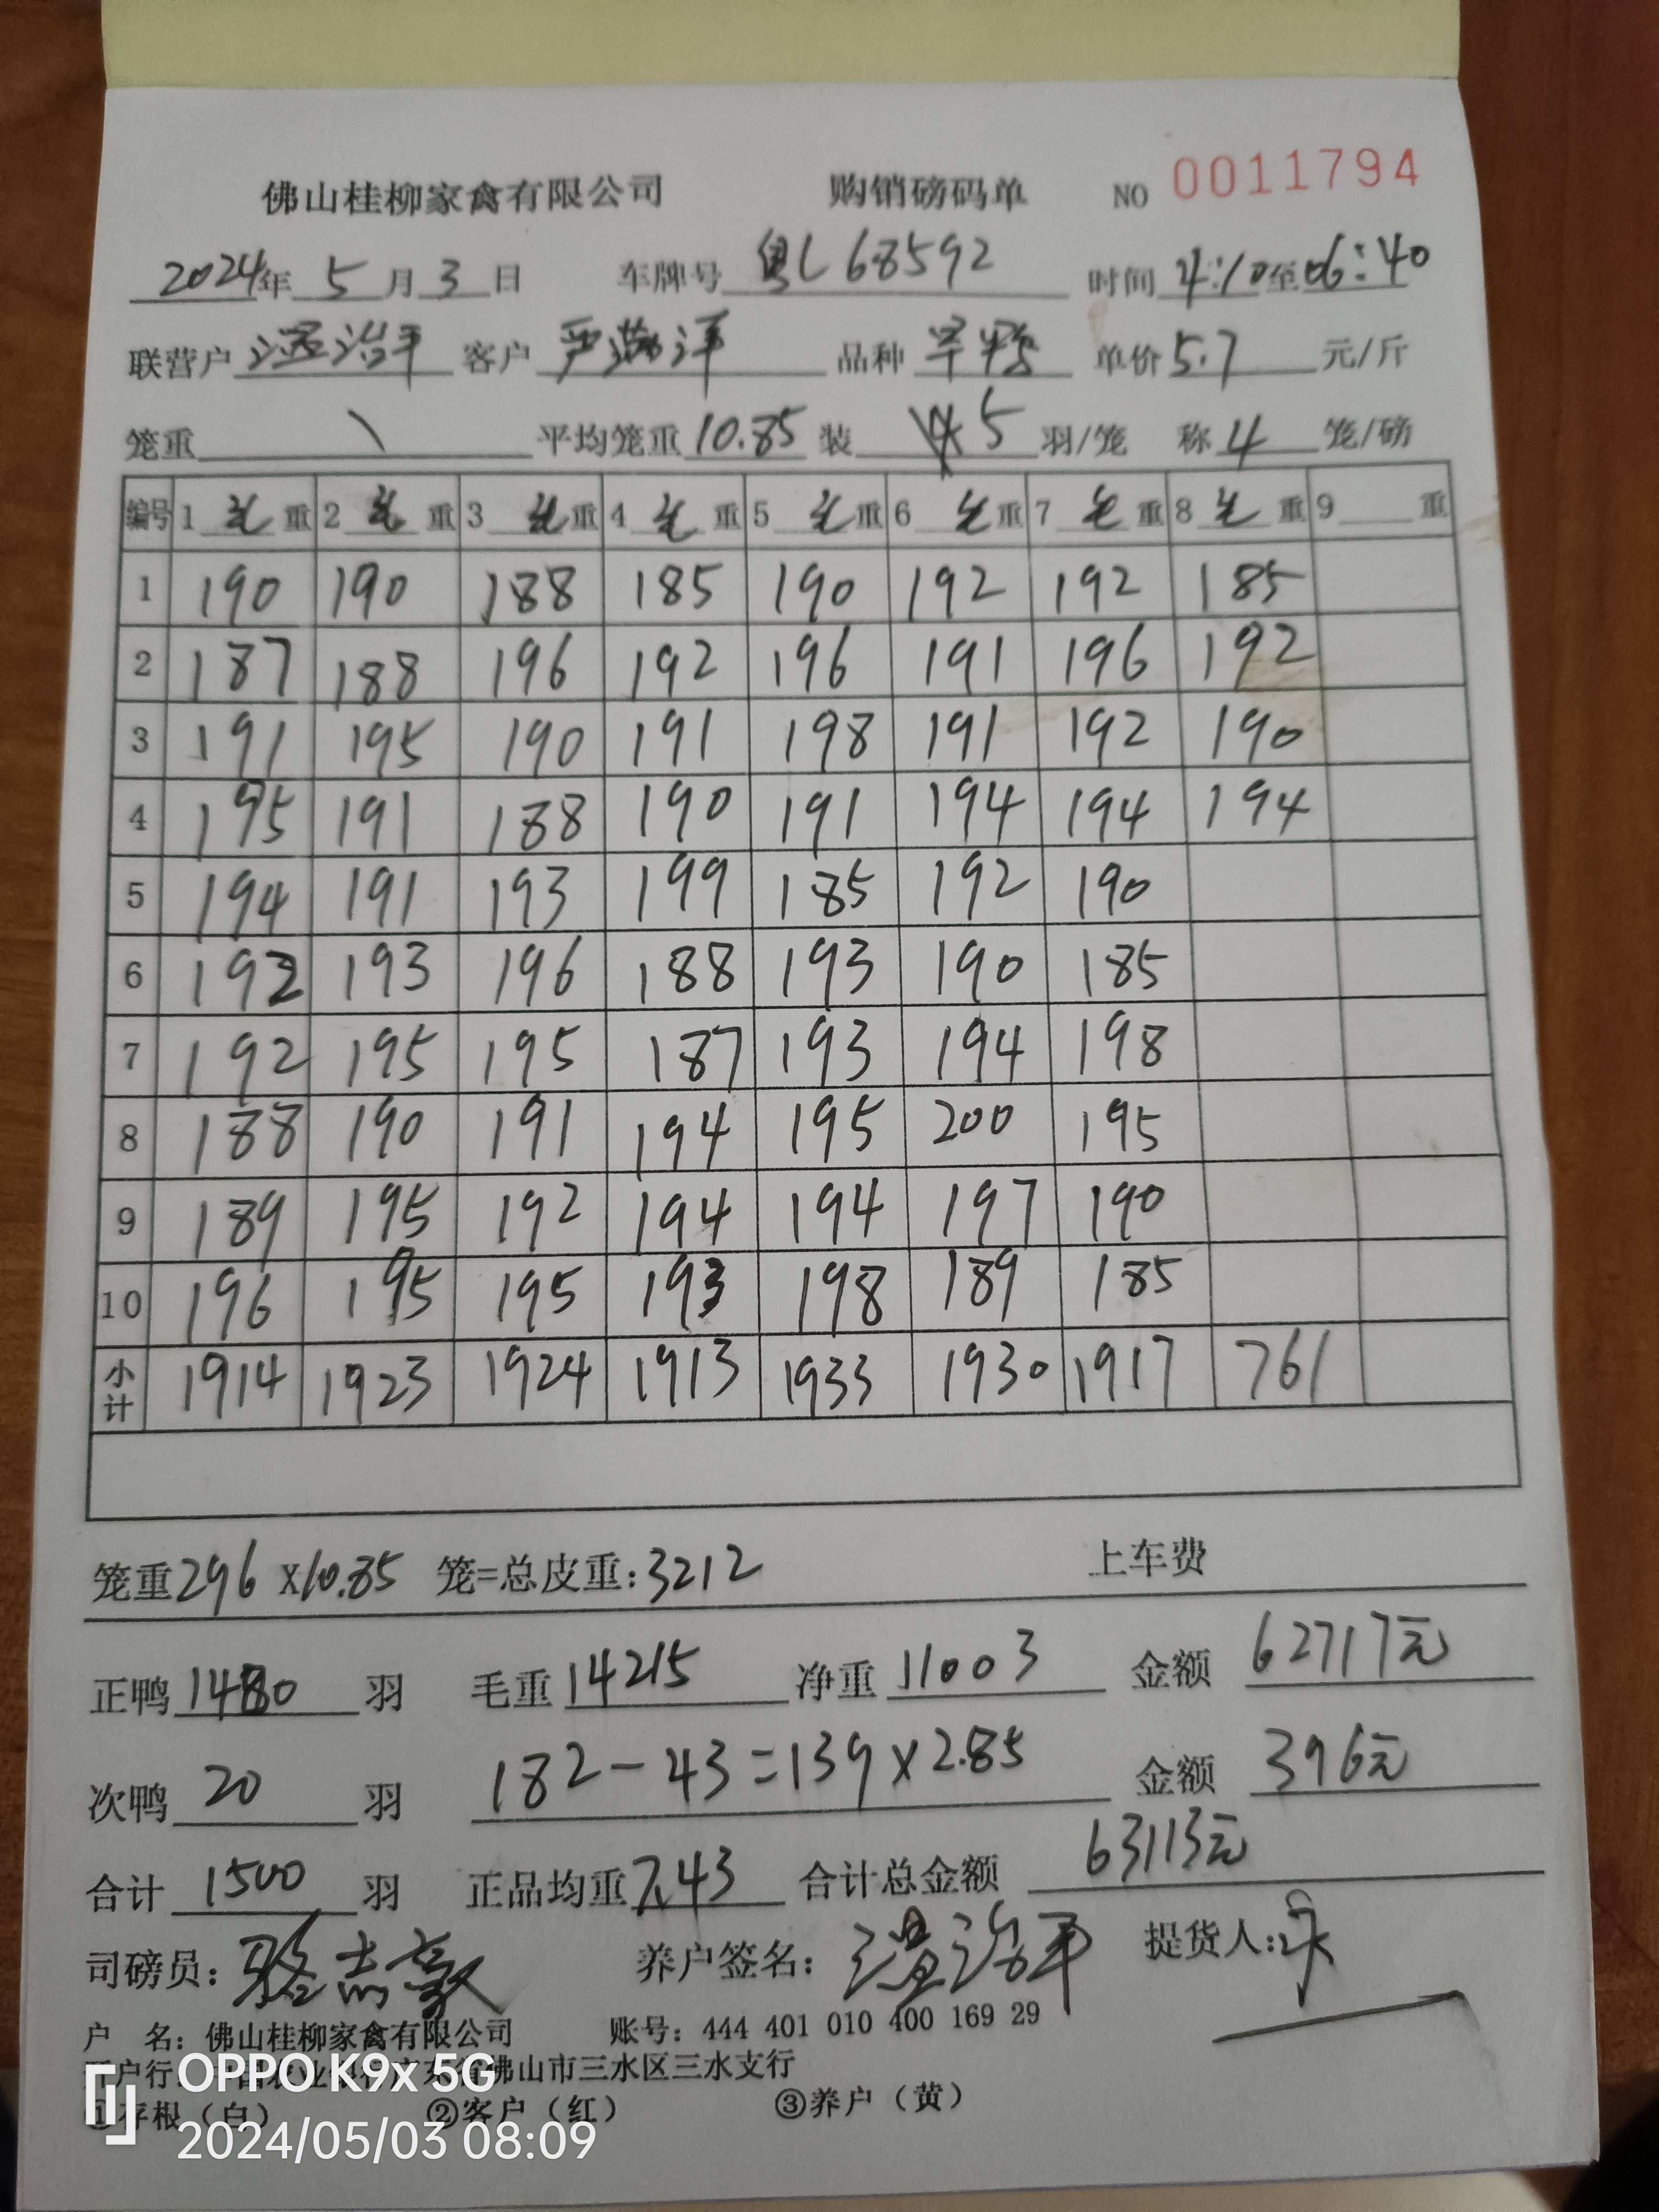 佛山桂柳家禽有限公司 购销磅码单 NO 0011794
2024年 5 月 3 日 车牌号 粤L68592 时间 4:10 至 06:40
联营户 温治平 客户 严 洋 品种 单价 5.7 元/斤
笼重 \ 平均笼重 10.85 装 5 羽/笼 称 4 笼/磅
编号 1 毛 重 2 毛 重 3 毛 重 4 毛 重 5 毛 重 6 毛 重 7 毛 重 8 毛 重 9 重
1 190 190 188 185 190 192 192 185
2 187 188 196 192 196 191 196 192
3 191 195 190 191 198 191 192 190
4 195 191 188 190 191 194 194 194
5 194 191 193 199 185 192 190
6 192 193 196 188 193 190 185
7 192 195 195 187 193 194 198
8 188 190 191 194 195 200 195
9 189 195 192 194 194 197 190
10 196 195 195 193 198 189 185
小计 1914 1923 1924 1913 1933 1930 1917 761
笼重 296 X10.85 笼=总皮重: 3212 上车费
正鸭 1480 羽 毛重 14215 净重 11003 金额 62717元
次鸭 20 羽 182-43=139×2.85 金额 396元
合计 1500 羽 正品均重 7.43 合计总金额 63113元
司磅员: 骆志豪 养户签名: 温治平 提货人:
户 名: 佛山桂柳家禽有限公司 账号: 444 401 010 400 169 29
户行: 佛山市三水区三水支行
①存根(白) ②客户(红) ③养户(黄)
OPPO K9x 5G
2024/05/03 08:09